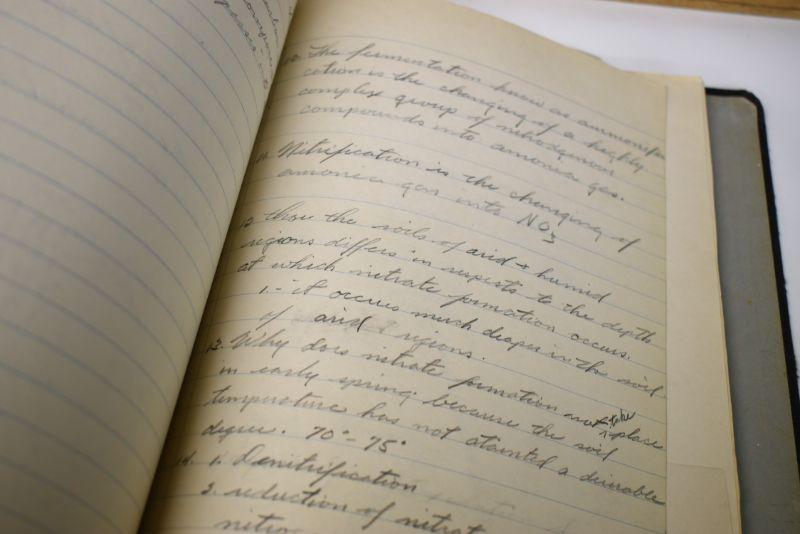 The fermentation known as ammonifi
cation is the changing of a highly
complex group of nitrodgenous
compounds into amonia gas.
Nitrification is the changing of
amonia gas into NO3
12. How the soils of arid & humid
regions differs in respects to the depth
at which nitrate formation occurs.
1. - it occurs much deaper in the soil
of arid regions.
13. Why does nitrate formation not take place
in early spring. because the soil
temperature has not atainted a desirable
degree. 70° - 75°
14. 1. Denitrification
2. reduction of nitrat
nitro